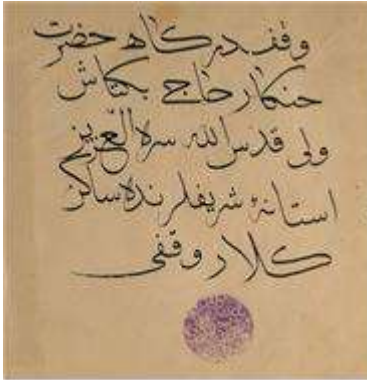 وقف درگاه حضرت
خنكار حاج بكتاش
ولى قدس الله سره العزيز
استانۀ شريفلرنده ساكن
كلار وقفى